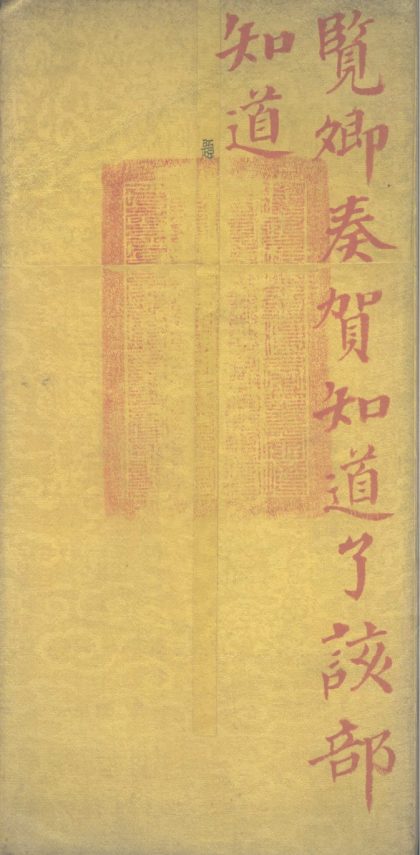 覽卿奏賀知道了該部
知道
題